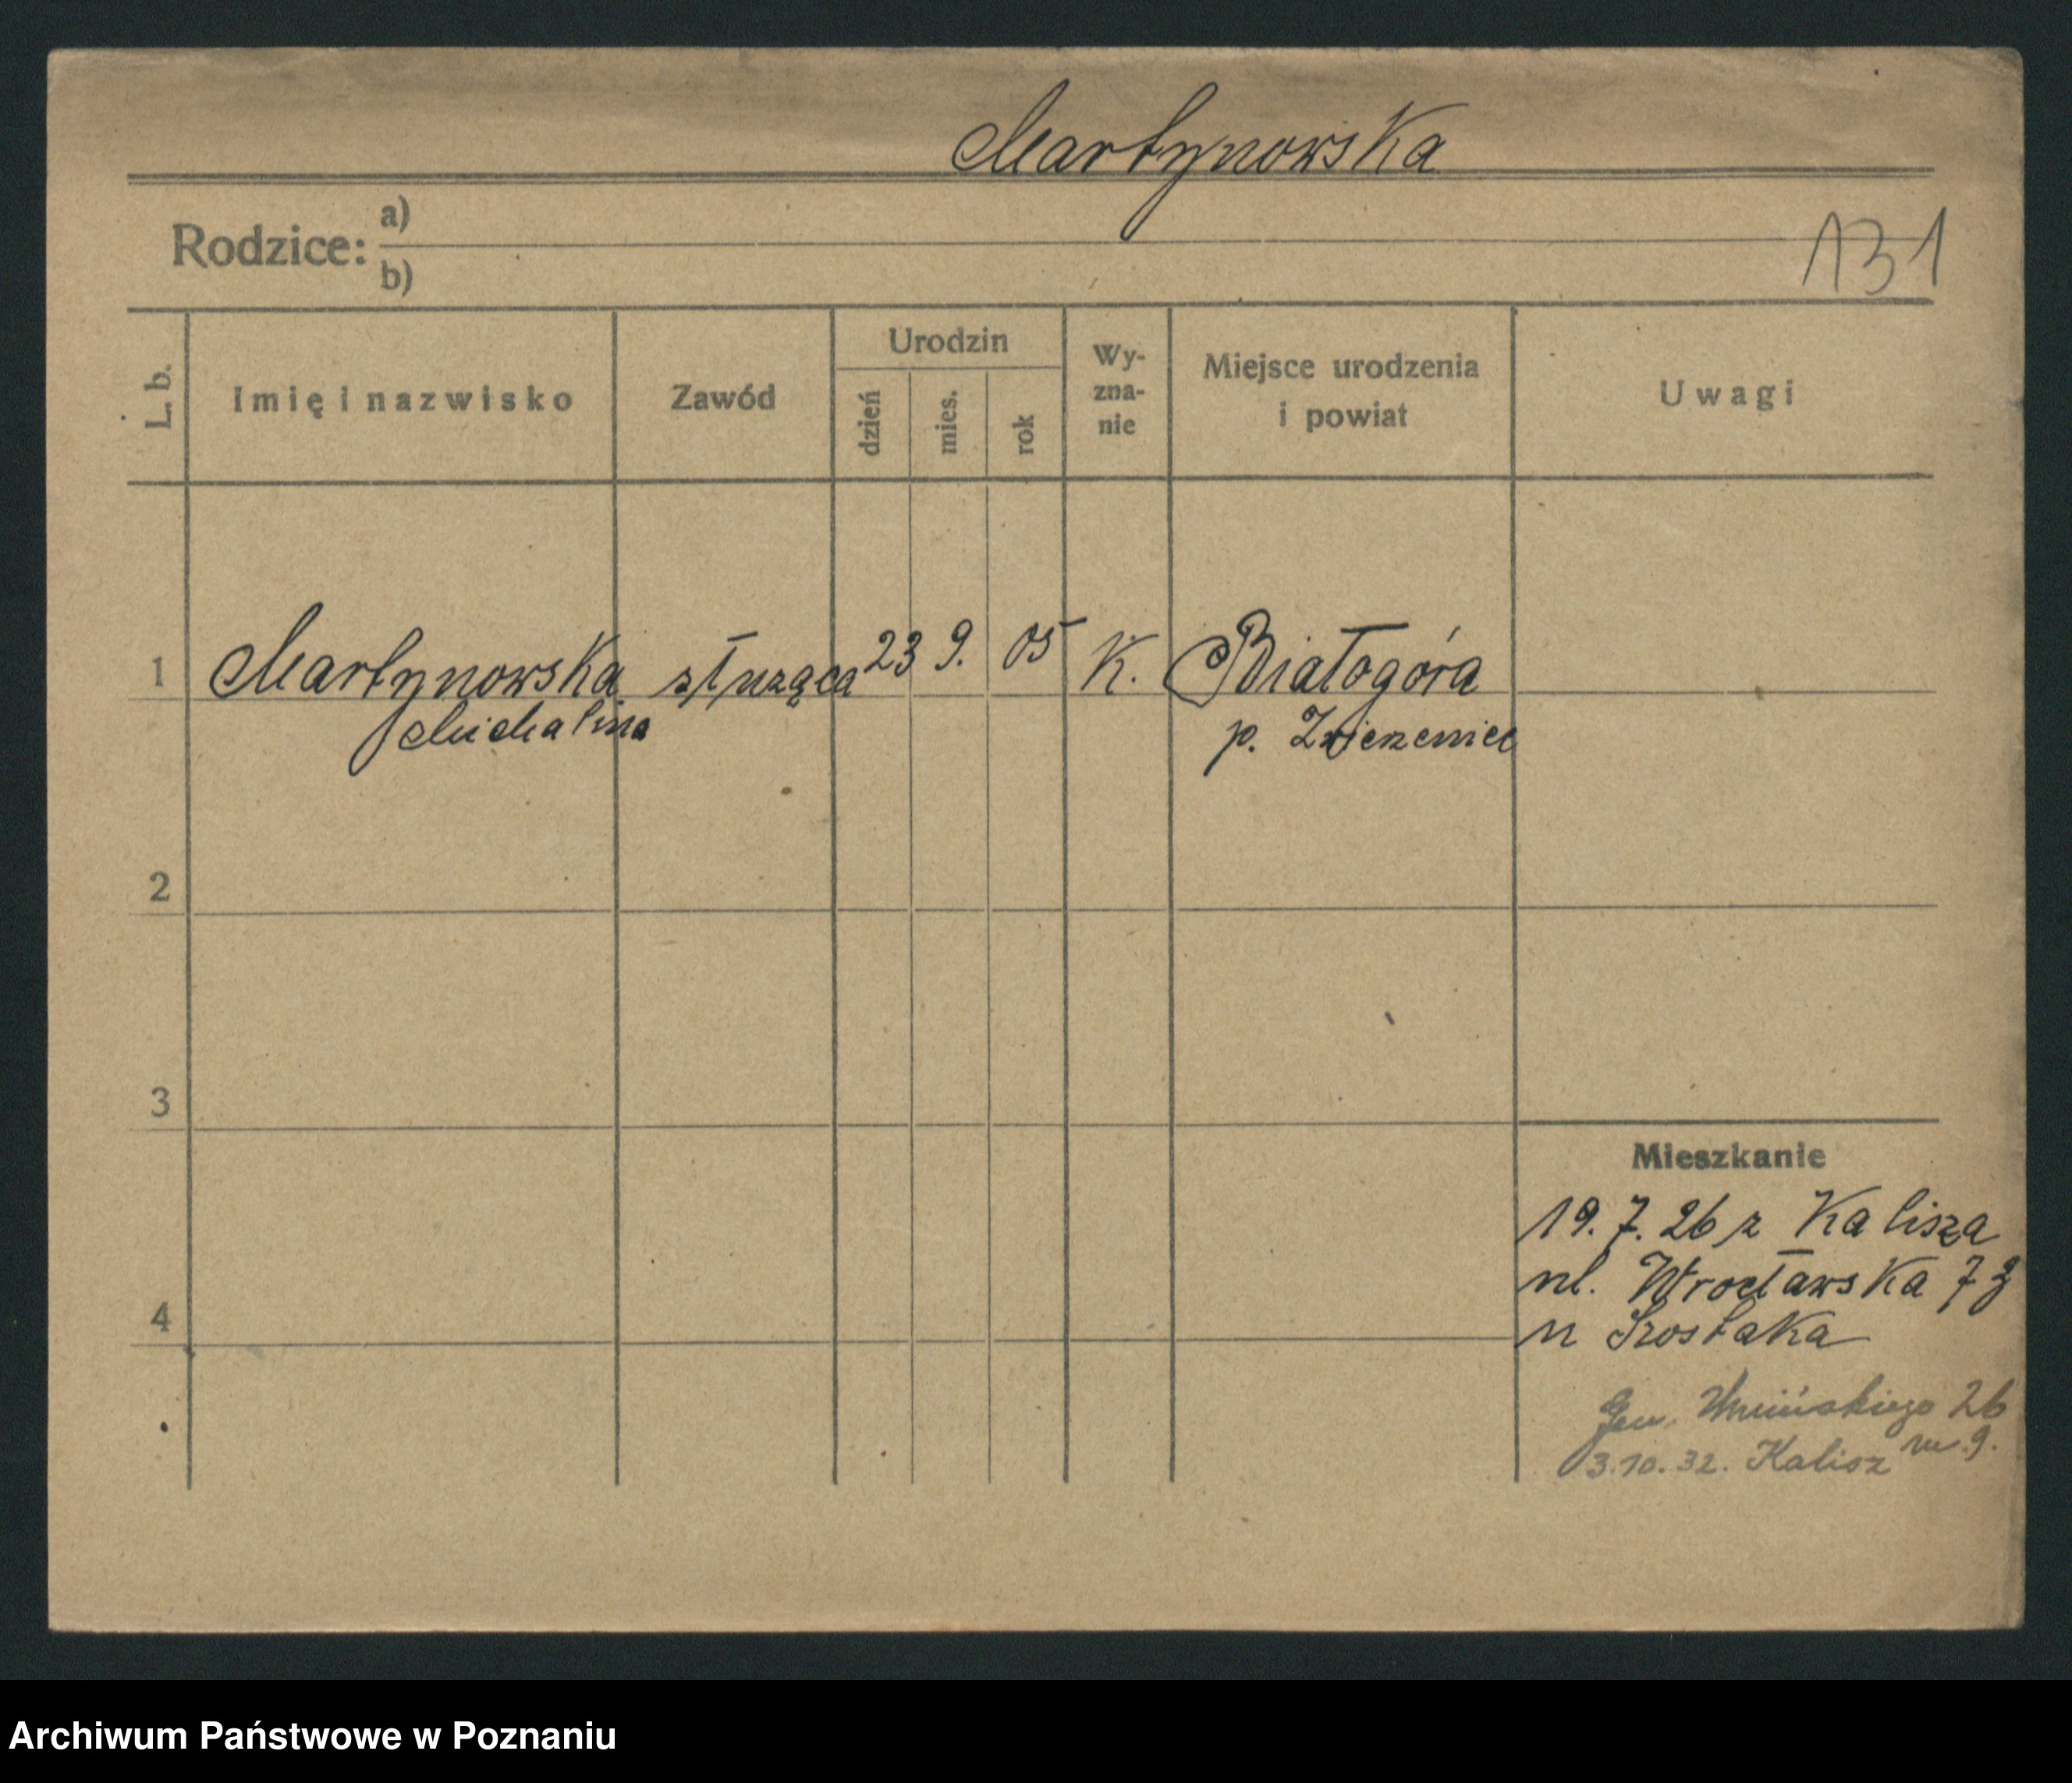 Martynowska
Rodzice: a)
b)
131
L. b.
Imię i nazwisko
Zawód
Urodzin
dzień
mies.
rok
Wy-
zna-
nie
Miejsce urodzenia
i powiat
Uwagi
1 Martynowska służąca 23 9. 05 K. Białogóra
Michalina p.
2
3
Mieszkanie
19. 7. 26 z Kalisza
ul. Wrocławska 7
4
u Szostaka
Gen. Umińskiego 26
m. 9.
3.10.32. Kalisz
Archiwum Państwowe w Poznaniu